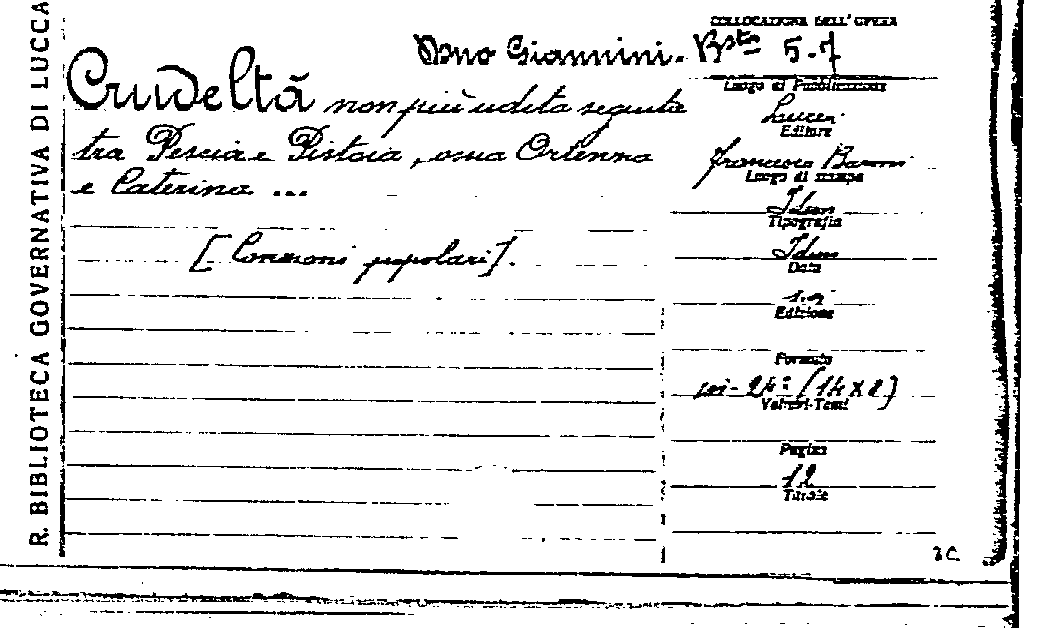 R. BIBLIOTECA GOVERNATIVA DI LUCCA
COLLOCAZIONE DELL'OPERA
Dono Giannini. Bsta 5-7
Crudeltà non più udita seguita
tra Pescia e Pistoia, ossia Ortenna
e Caterina ...
[Canzoni popolari].
Luogo di Pubblicazione
Lucca
Editore
Francesco Baroni
Luogo di stampa
Idem
Tipografia
Idem
Data
Edizione
Formato
in-24º (14x8)
Volumi-Tomi
Pagine
12
Titolo